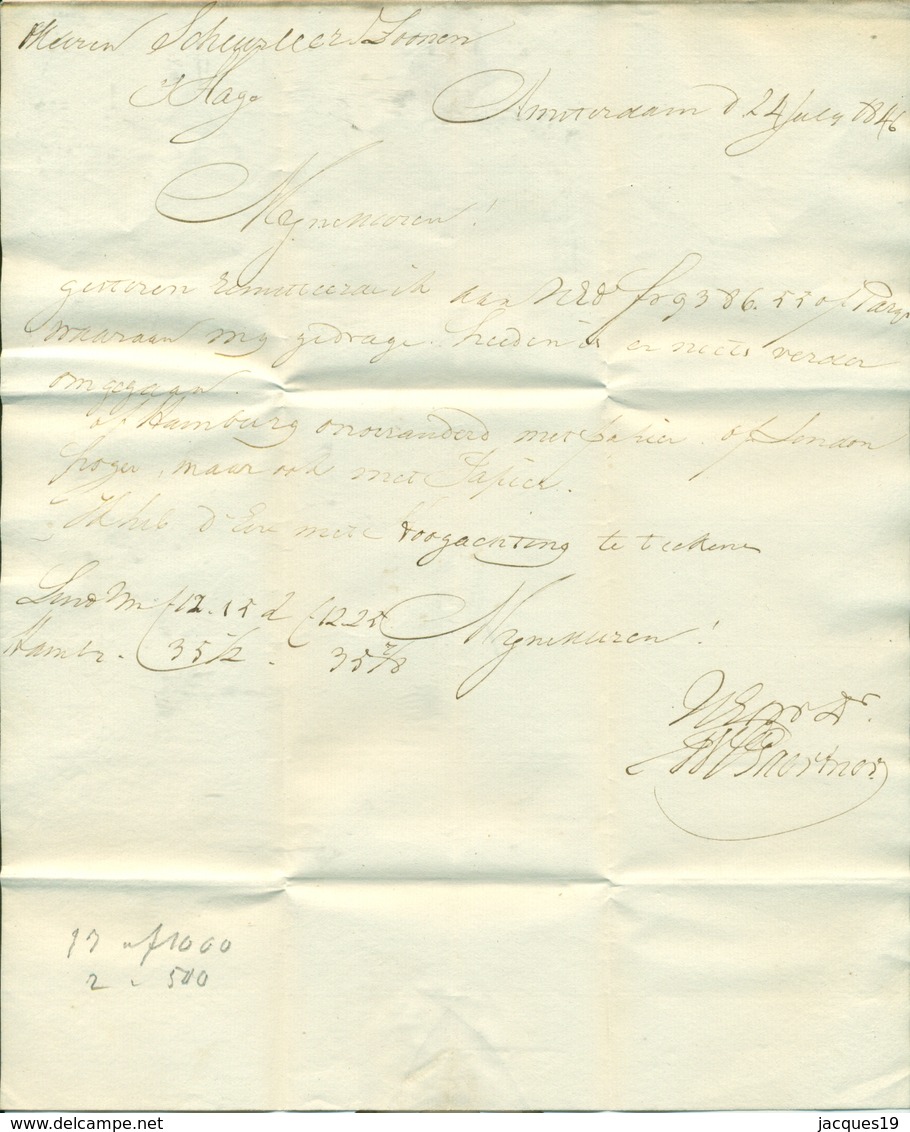 Heeren Scheurleer & Zoonen
s'Hage
Amsterdam d 24 July 1846
Mynheeren!
gisteren remitteerde ik aan UEd fr 9386.55 op Parys
waaraan my gedrage. heeden is er niets verder
omgegaan.
op Hamburg onveranderd met Papier. op London
hoger, maar ook met Papier.
Ik heb d'Eer met hoogachting te teekenen
Lond 12.15 d 12.25 Mynheeren!
Hambr. 35 1/2 . 35 7/8
UE Dr
17 a f 1000
2 " 500
delcampe.net
jacques19